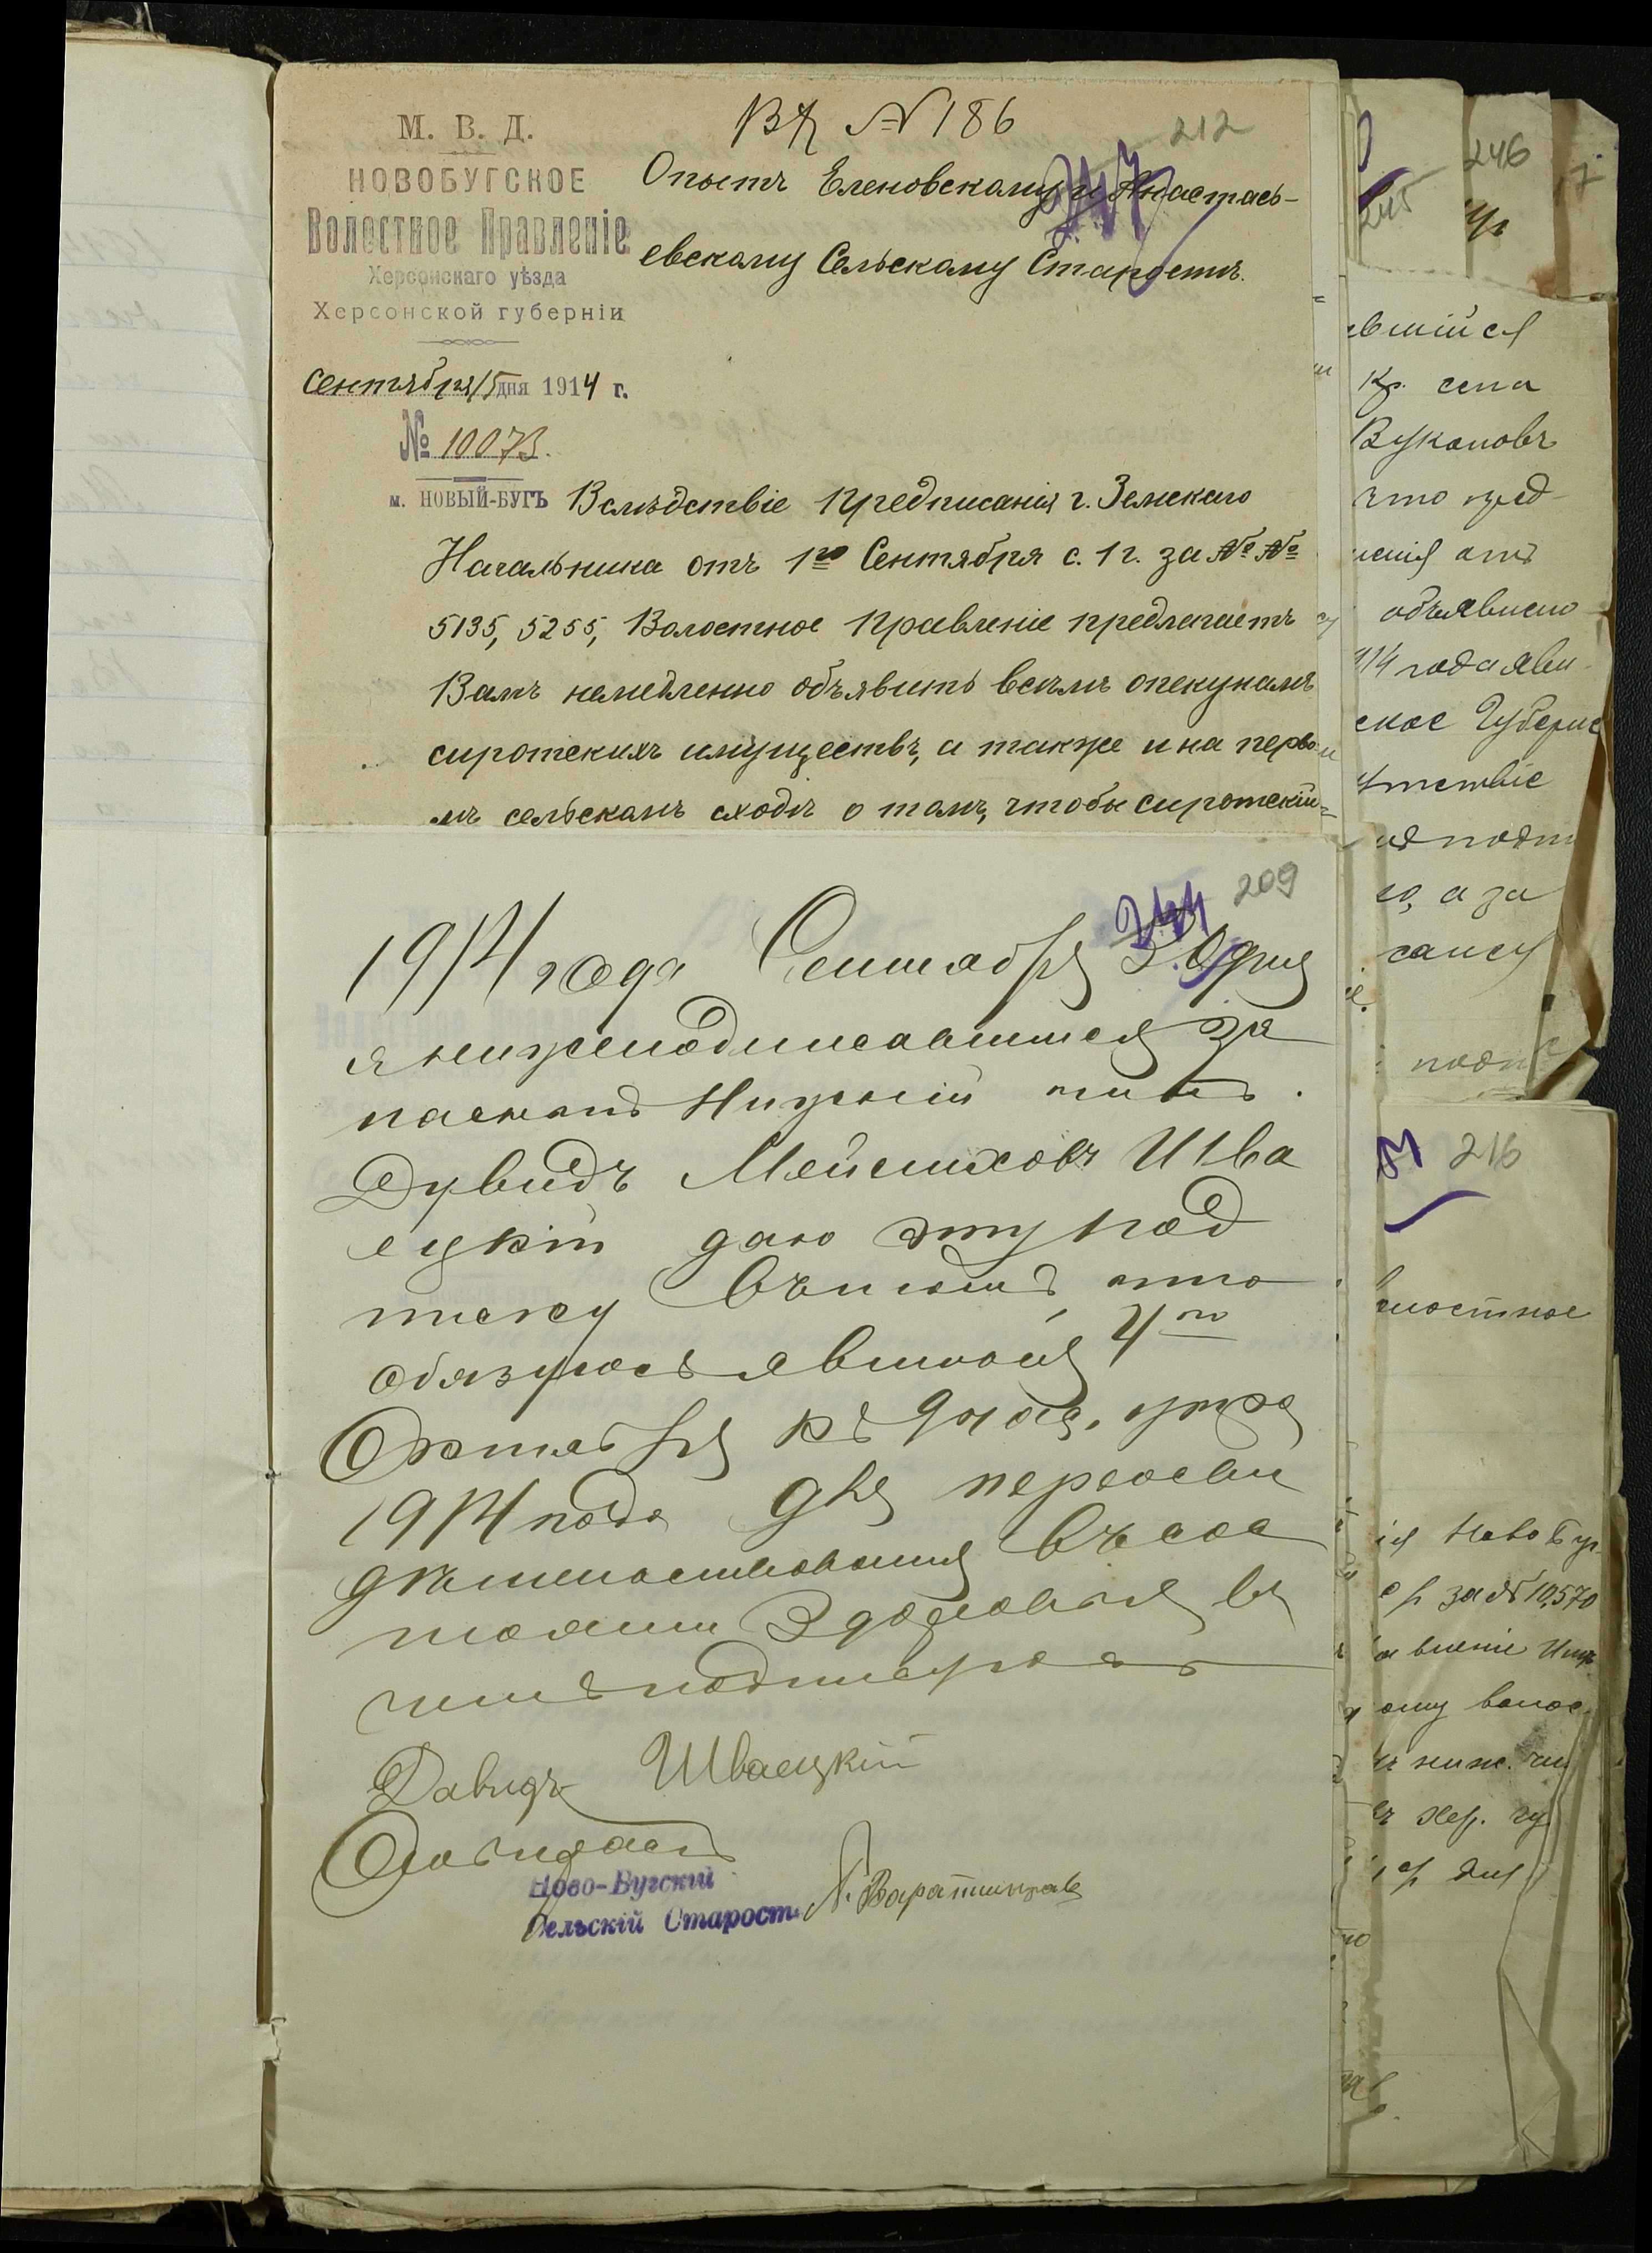 М. В. Д.
НОВОБУГСКОЕ
Волостное Правленіе
Херсонскаго уѣзда
Херсонской губерніи
Сентября 15 дня 1914 г.
№ 10073.
м. НОВЫЙ-БУГЪ
ВД № 186
212
Опытъ Еленовскому и Анастась-
евскому Сельскому Старостѣ.
Вслѣдствіе предписанія г. Земскаго
Начальника отъ 1го Сентября с. г. за №№
5135, 5255, Волостное Правленіе предлагаетъ
Вамъ немедленно объявить всѣмъ опекунамъ
сиротскихъ имуществъ, а также и на перво-
мъ сельскомъ сходѣ о томъ, чтобы сиротскі-
244
209
1914 года Сентября 30 дня
я нижеподписавшийся за
пасной Нижній чинъ.
Дувидъ Мейлиховъ Шва
ецкій даю эту под
писку въ томъ что
обязуюсь явиться 4го
Октября къ 9 час. утра
1914 года для переосви
дѣтельствованія въ сос
тояніи Здоровья въ
чемъ подписуюсь
Давидъ Швецкій
Отобралъ
Ново-Бугскій
Сельскій Староста
246
245
7
вшійся
кр. села
что пред-
нія отъ
объявлено
914 года яви-
ское Губернс
утствіе
го, а за
216
лостное
ія Ново Буг-
за № 10,570
авленіе
ому волос
ниж. чи
Хер. гу